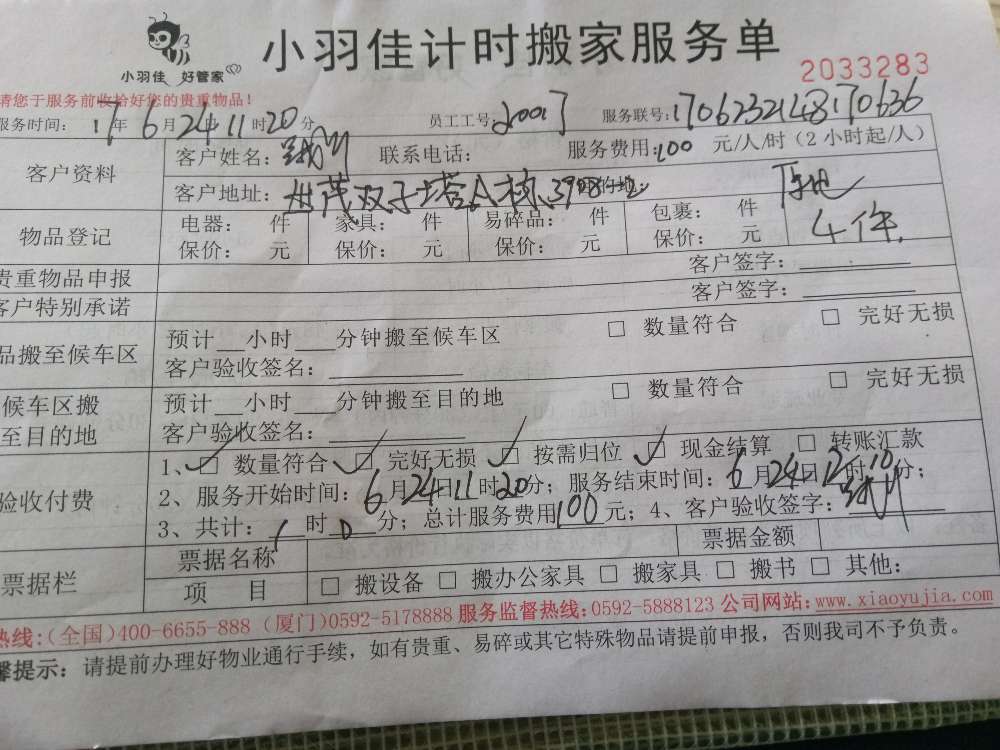 小羽佳 好管家
小羽佳计时搬家服务单
2033283
请您于服务前收拾好您的贵重物品！
服务时间： 17年6月24日11时20分 员工工号： 服务联号：1706232148170636
客户资料
客户姓名： 联系电话： 服务费用：100 元/人/时（2小时起/人）
客户地址：世茂双子塔A栋3908 原地
物品登记
电器： 件 家具： 件 易碎品： 件 包裹： 件 4件.
保价： 元 保价： 元 保价： 元 保价： 元
贵重物品申报 客户签字：
客户特别承诺 客户签字：
品搬至候车区
预计___小时___分钟搬至候车区 □ 数量符合 □ 完好无损
客户验收签名：
候车区搬
至目的地
预计___小时___分钟搬至目的地 □ 数量符合 □ 完好无损
客户验收签名：
验收付费
1、☑ 数量符合 ☑ 完好无损 ☑ 按需归位 ☑ 现金结算 □ 转账汇款
2、服务开始时间：6月24日11时20分；服务结束时间：6月24日12时10分；
3、共计：1时0分；总计服务费用100元；4、客户验收签字：
票据栏
票据名称 票据金额
项 目 □ 搬设备 □ 搬办公家具 □ 搬家具 □ 搬书 □ 其他：
热线：(全国)400-6655-888 (厦门)0592-5178888 服务监督热线：0592-5888123 公司网站：www.xiaoyujia.com
馨提示：请提前办理好物业通行手续，如有贵重、易碎或其它特殊物品请提前申报，否则我司不予负责。